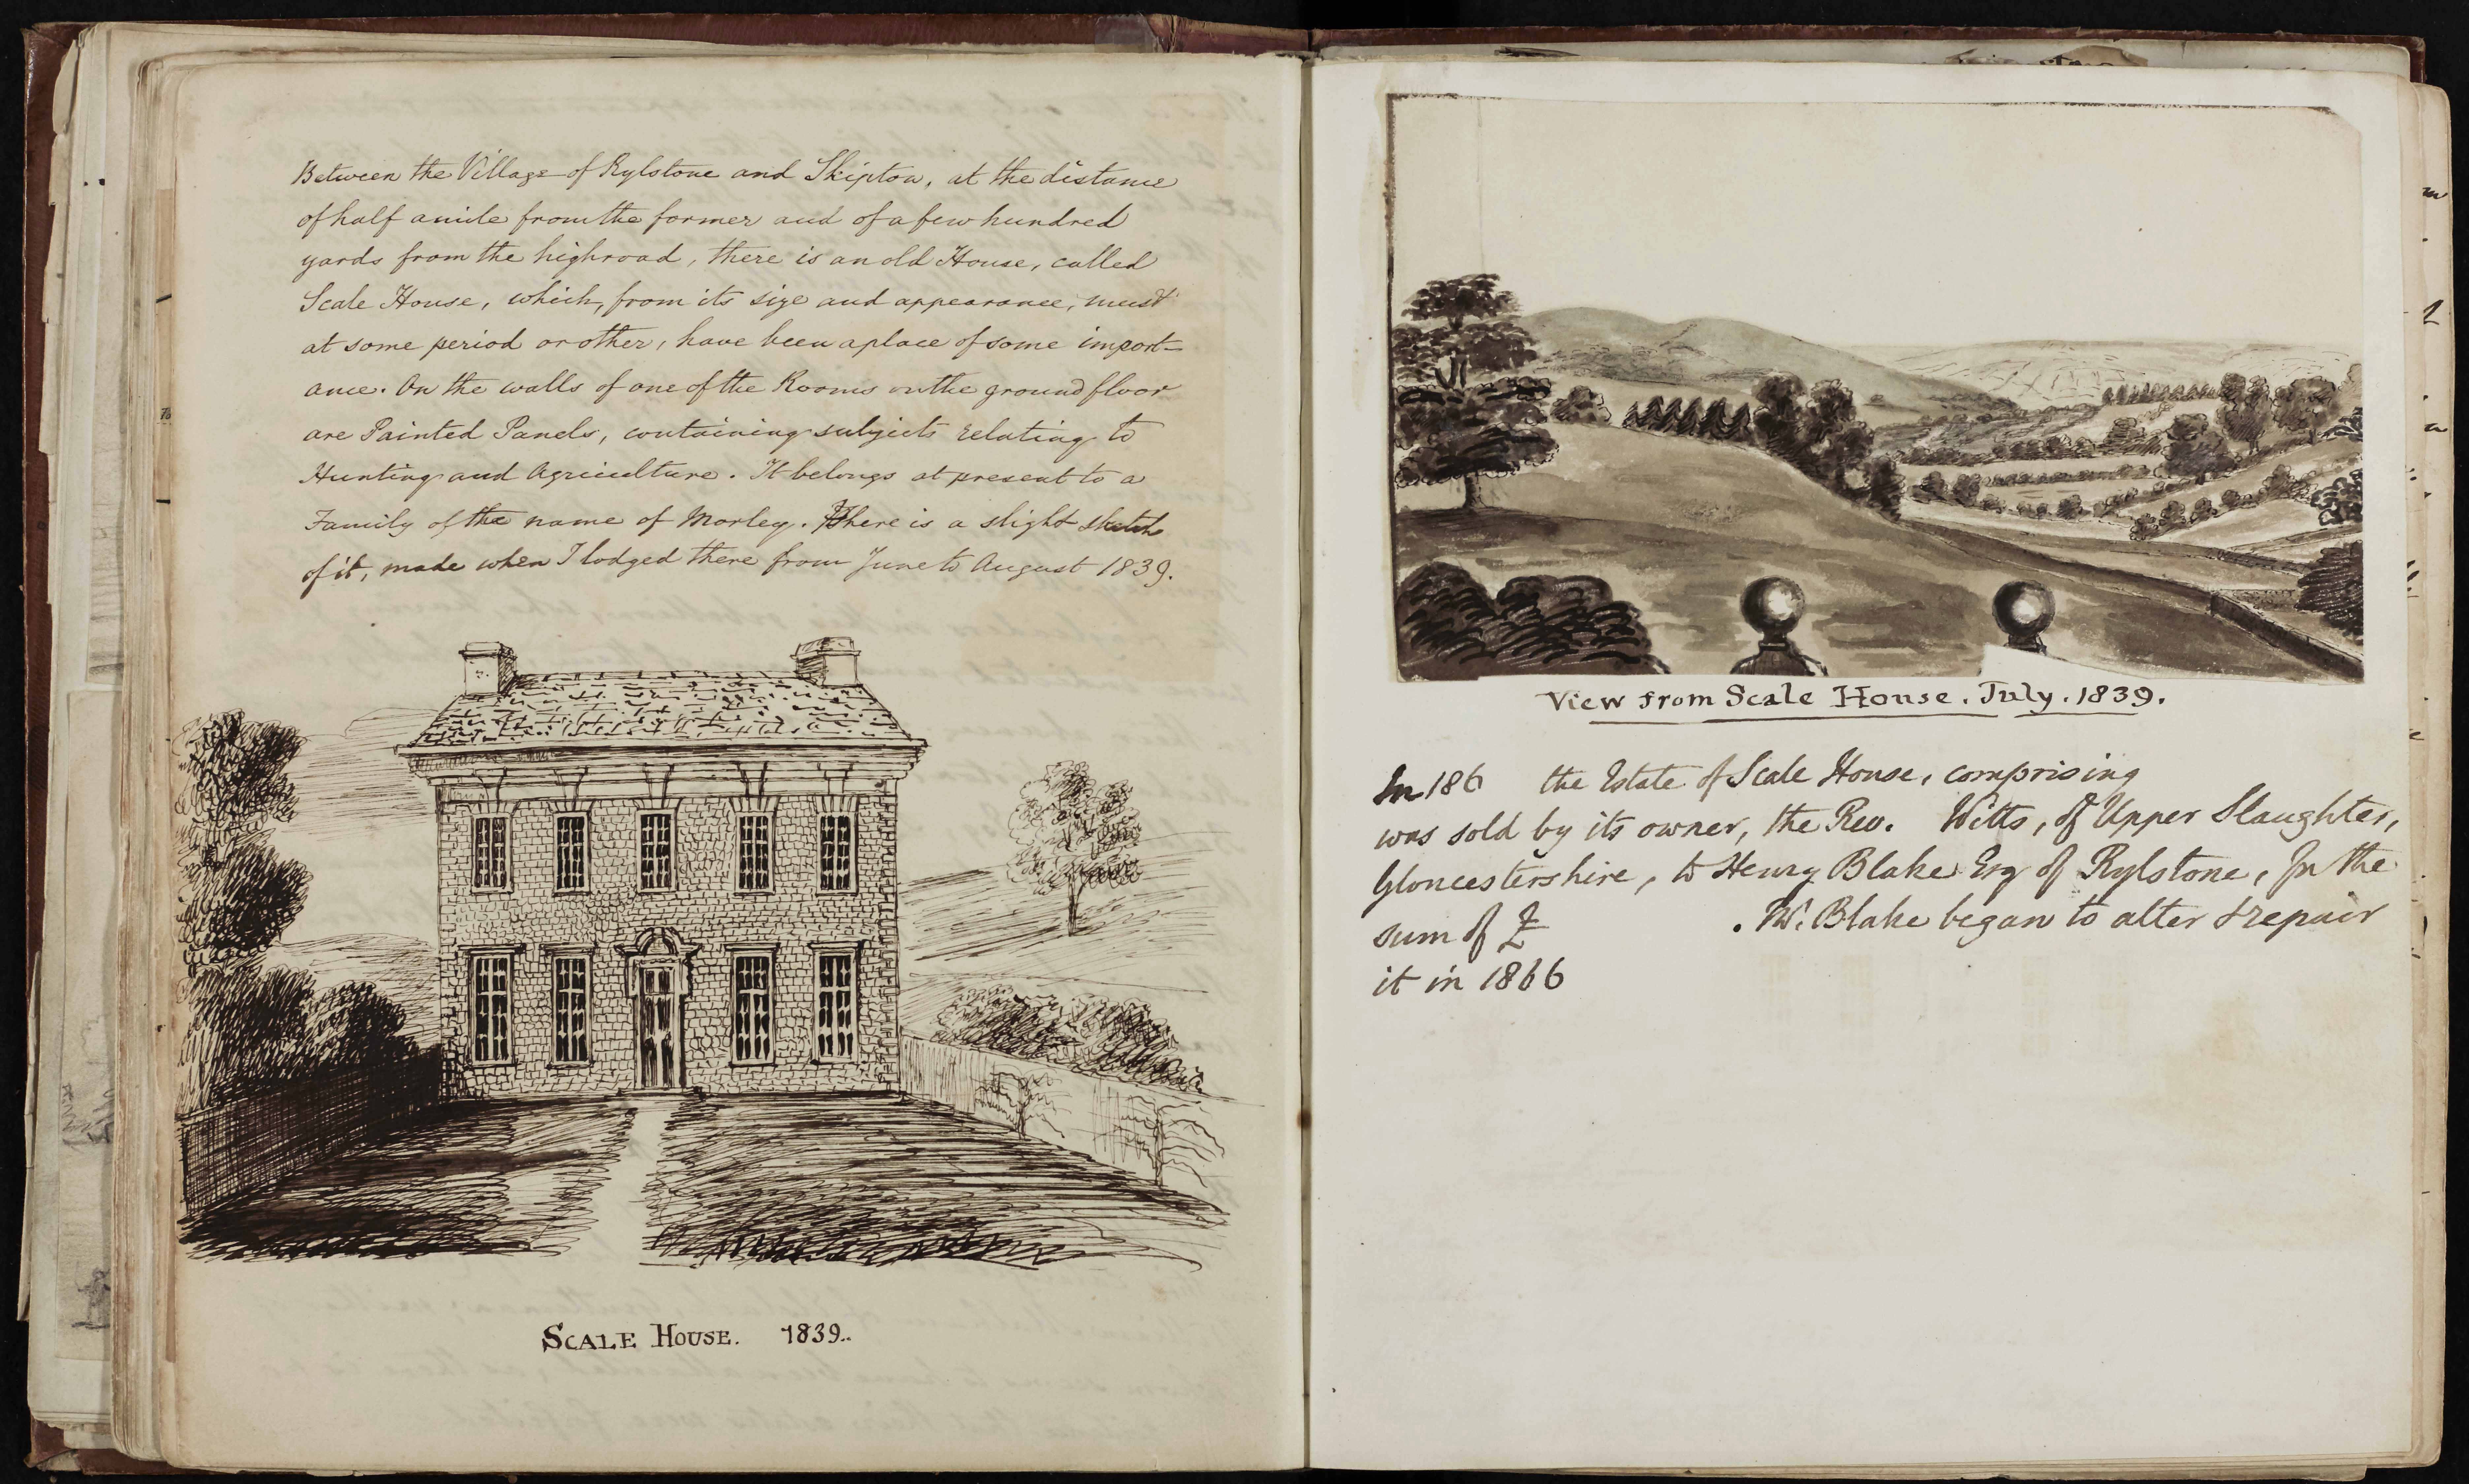 Between the Village of Rylstone and Skipton, at the distance
of half a mile from the former and of a few hundred
yards from the highroad, there is an old House, called
Scale House, which, from its size and appearance, must
at some period or other, have been a place of some import-
ance. On the walls of one of the Rooms on the ground floor
are Painted Panels, containing subjects relating to
Hunting and Agriculture. It belongs at present to a
Family of the name of Morley. There is a slight sketch
of it, made when I lodged there from June to August 1839.
SCALE HOUSE. 1839.
View from Scale House. July. 1839.
In 186 the Estate of Scale House, comprising
was sold by its owner, the Rev. Witts, of Upper Slaughter,
Gloucestershire, to Henry Blake Esq of Rylstone, for the
sum of £ . Mr. Blake began to alter & repair
it in 1866